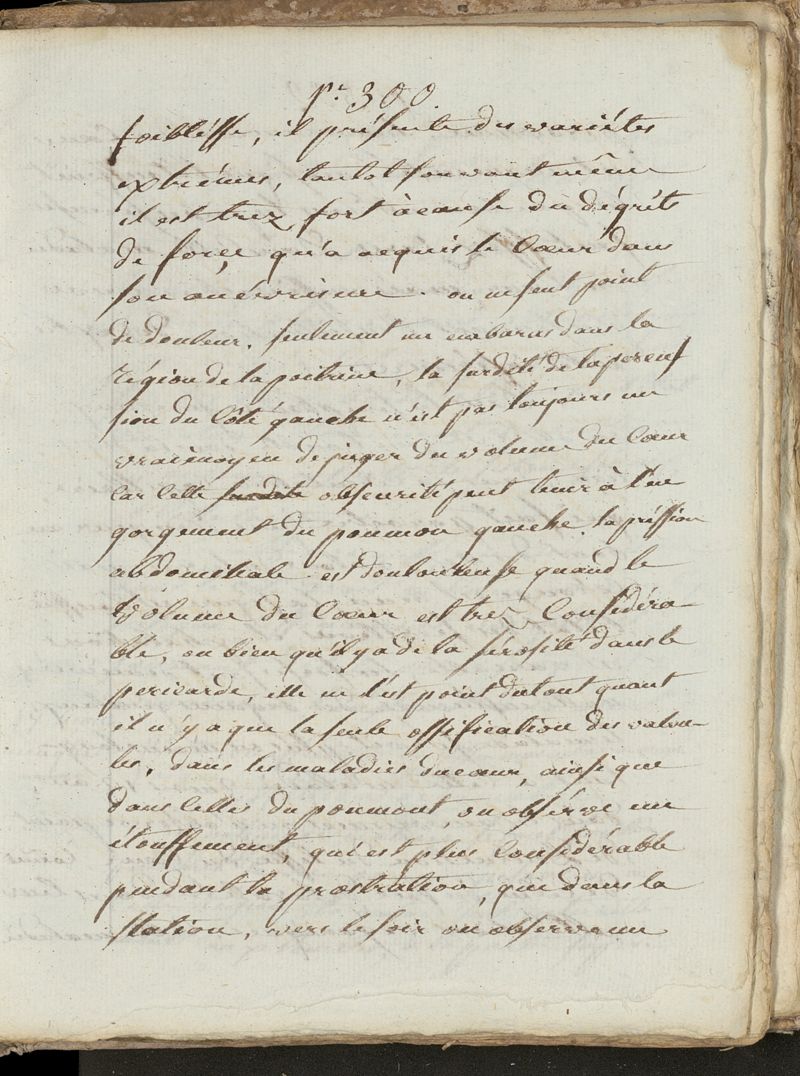 pe. 300.
foiblésse, il présente des variétés
extrémes, tantot souvant même
il est trez fort à cause du dégrés
de force qu'a acquis le Cœur dans
son anévrisme. on ne sent point
de douleur. seulement un embaras dans la
région de la poitrine, la surdité de la percus
sion du Côté gauche n'est pas toujours un
vrai moyen de juger du volume du Cœur
Car Cette surdite obscurité peut tenir à l'en
gorgement du poumon gauche. la préssion
abdominale est douloureuse quand le
Volume du Cœur est tres Considéra-
ble, ou bien qu'il y a de la sérosité dans le
pericarde, elle ne l'est point du tout quant
il n'y a que la seule ossification des valvu-
les, dans les maladies du cœur, ainsi que
dans Celles du poumont, on obsérve un
étouffement, qui est plus Considérable
pendant la prostration, que dans la
station, vers le soir on observe un